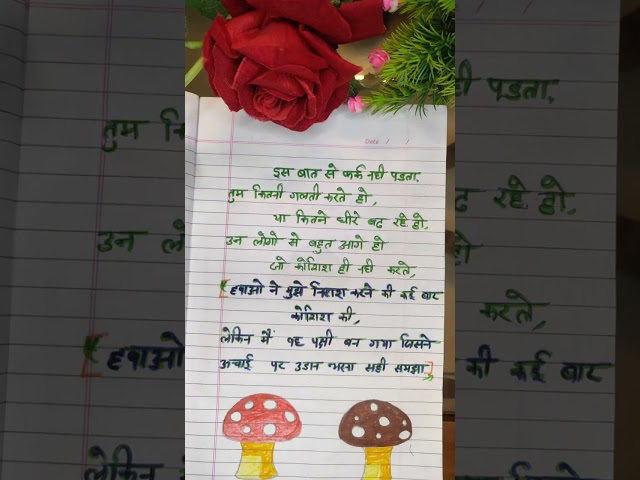 Date / /
इस बात से फर्क नही पडता.
तुम कितनी गलती करते हो,
या कितने धीरे बढ रहे हो.
उन लोगो से बहुत आगे हो
जो कोशिश ही नही करते,
[हवाओ ने मुझे निराश करने की कई बार
कोशिश की,
लेकिन मैं वह पक्षी बन गया जिसने
ऊचाई पर उडान भरना सही समझा]